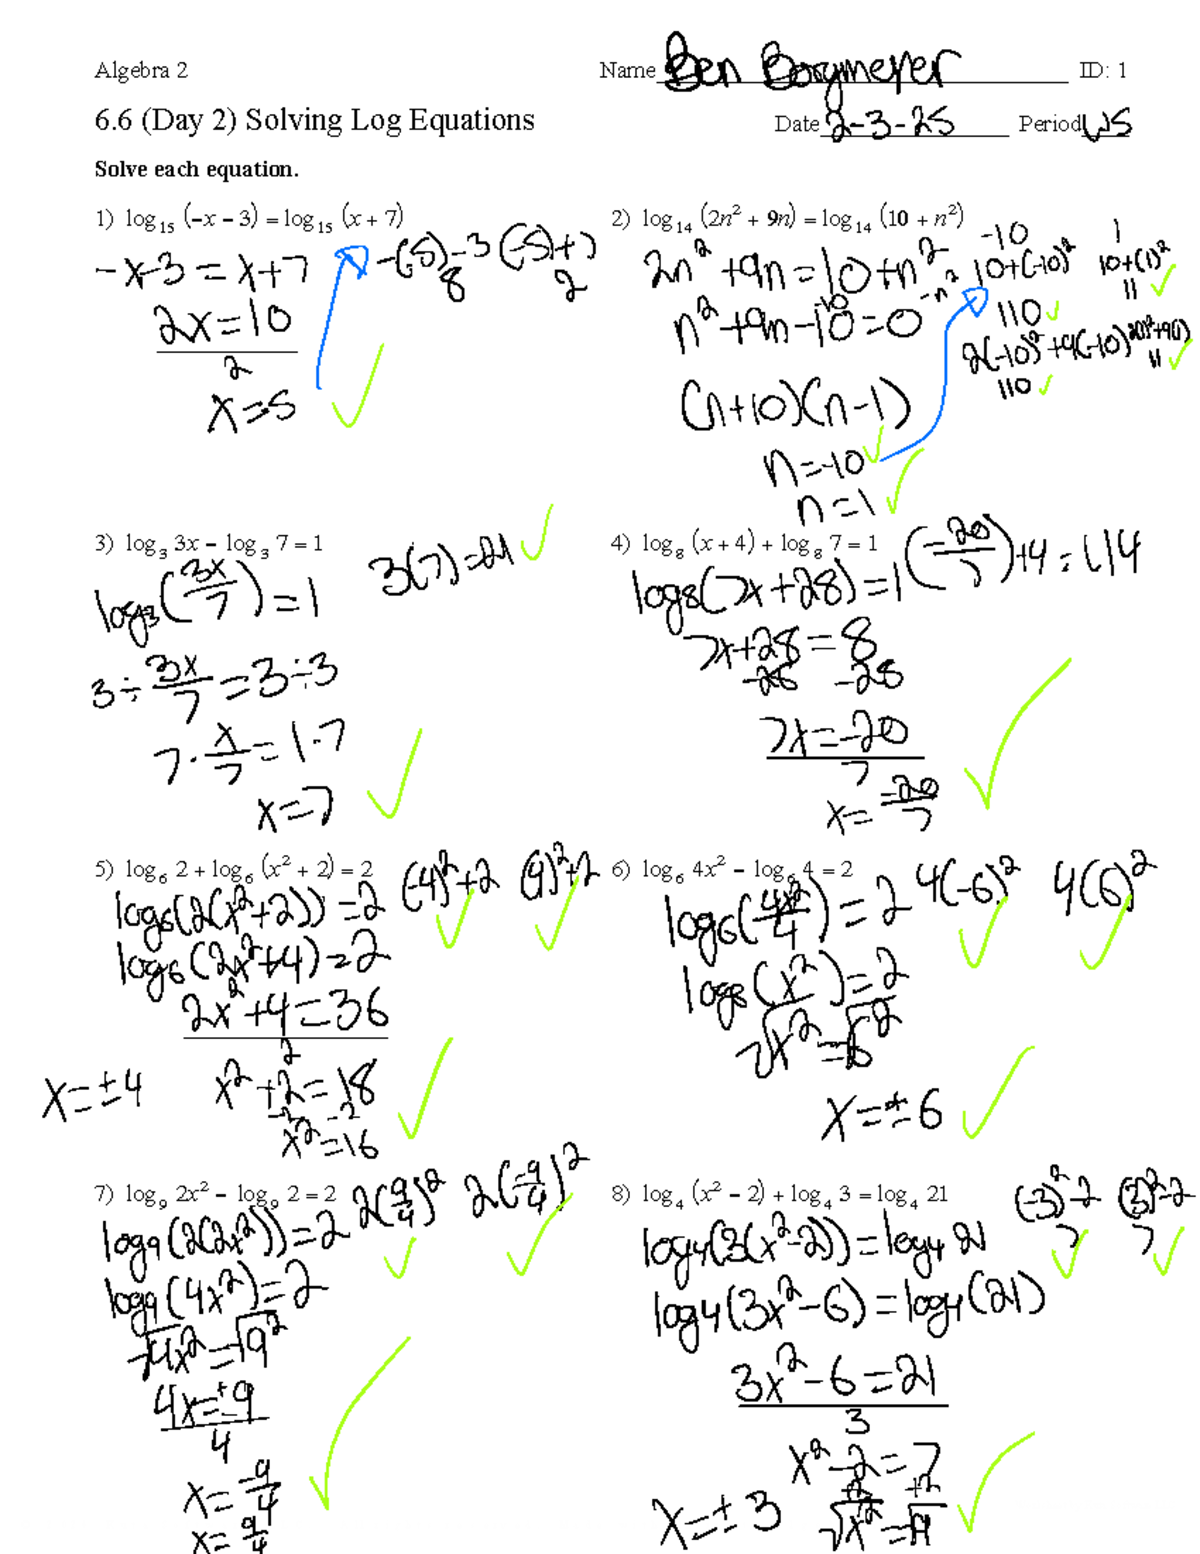 Algebra 2
Name Ben Borgmeyer ID: 1
6.6 (Day 2) Solving Log Equations
Date 2-3-25 Period WS
Solve each equation.
1) log₁₅ (−x − 3) = log₁₅ (x + 7)
-x-3 = x+7
2x=10
2
x=5
-(-5)-3 (-5)+7
8 2
2) log₁₄ (2n² + 9n) = log₁₄ (10 + n²)
2n² +9n=10+n²
-10 -n²
n²+9n-10=0
(n+10)(n-1)
n=-10
n=1
-10 1
10+(-10)² 10+(1)²
110 11
2(-10)²+9(-10) 2(1)²+9(1)
110 11
3) log₃ 3x − log₃ 7 = 1
3(7)=21
log₃(3x/7)=1
3÷3x/7=3÷3
7·x/7=1·7
x=7
4) log₈ (x + 4) + log₈ 7 = 1
(-20/7)+4=1.14
log8(7x+28)=1
7x+28=8
-28 -28
7x=-20
7
x=-20/7
5) log₆ 2 + log₆ (x² + 2) = 2
(-4)²+2 (4)²+2
log6(2(x²+2))=2
log6(2x²+4)=2
2x²+4=36
2
x²+2=18
-2 -2
x²=16
x=±4
6) log₆ 4x² − log₆ 4 = 2
4(-6)² 4(6)²
log6(4x²/4)=2
log8(x²)=2
√x²=√6²
x=±6
7) log₉ 2x² − log₉ 2 = 2
2(9/4)² 2(-9/4)²
log9(2(2x²))=2
log9(4x²)=2
√4x²=√9²
4x=±9
4
x=-9/4
x=9/4
8) log₄ (x² − 2) + log₄ 3 = log₄ 21
(-3)²-2 (3)²-2
7 7
log4(3(x²-2))=log4 21
log4(3x²-6)=log4(21)
3x²-6=21
3
x²-2=7
+2 +2
√x²=√9
x=±3